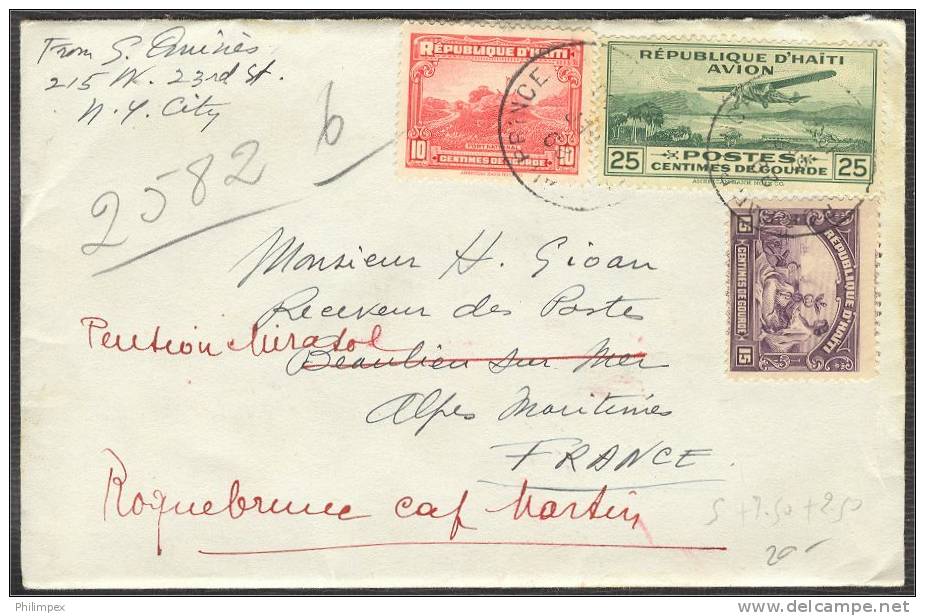 From S.
215 W. 23rd St.
N. Y. City
2582 b
RÉPUBLIQUE D'HAÏTI
FORT NATIONAL
10 CENTIMES DE GOURDE 10
PRINCE
RÉPUBLIQUE D'HAÏTI
AVION
POSTES
25 CENTIMES DE GOURDE 25
RÉPUBLIQUE D'HAÏTI
15 CENTIMES DE GOURDE 15
Monsieur H. Gioan
Receveur des Postes
Pension Mirasol Beaulieu sur Mer
Alpes Maritimes
FRANCE
Roquebrune cap Martin
5 + 7.50 + 2.50
20-
Philimpex
www.delcampe.net